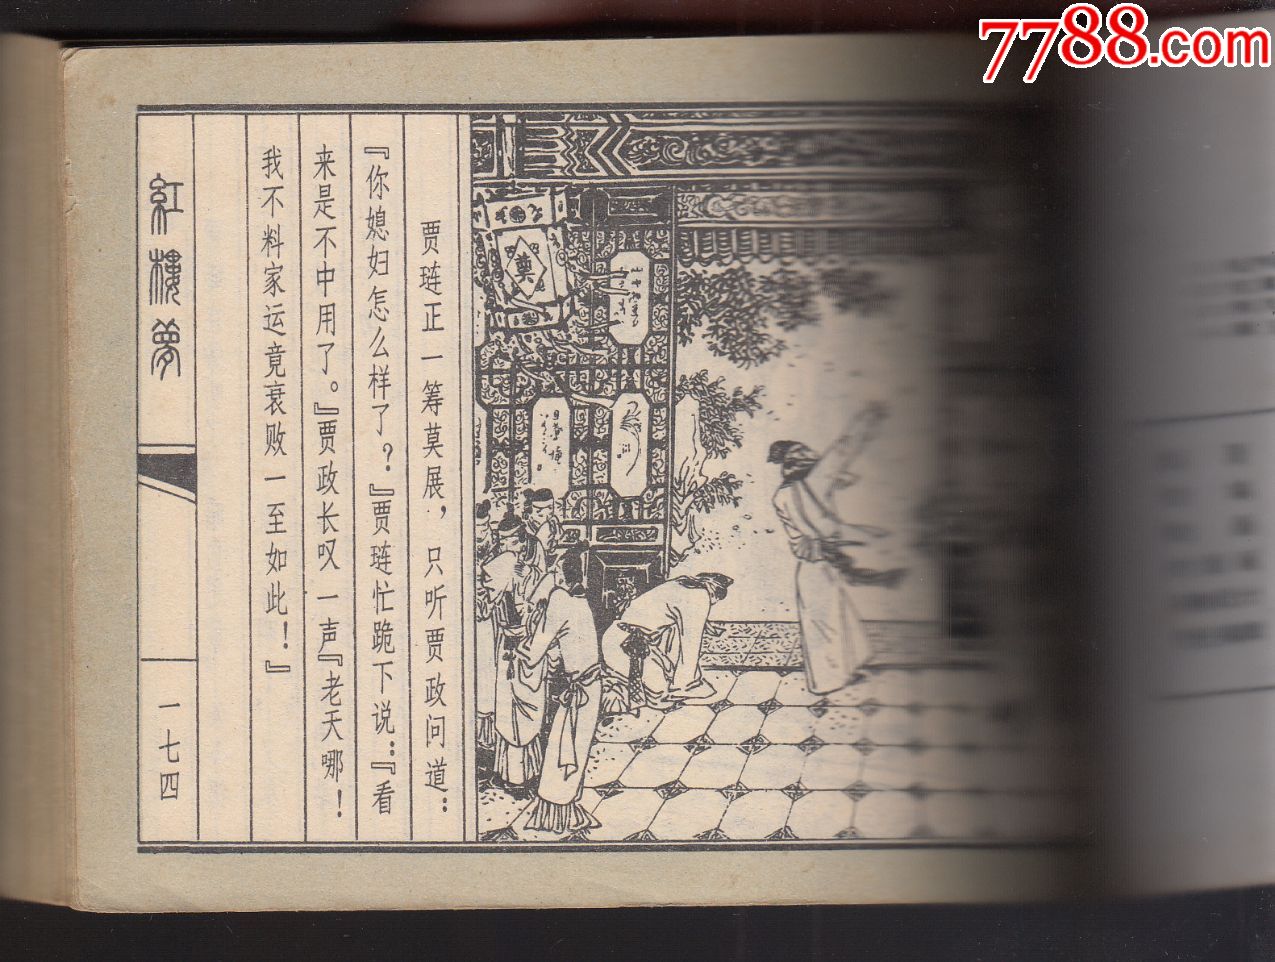 7788.com
贾琏正一筹莫展，只听贾政问道：
『你媳妇怎么样了？』贾琏忙跪下说：『看
来是不中用了。』贾政长叹一声『老天哪！
我不料家运竟衰败一至如此！』
紅樓夢
一七四